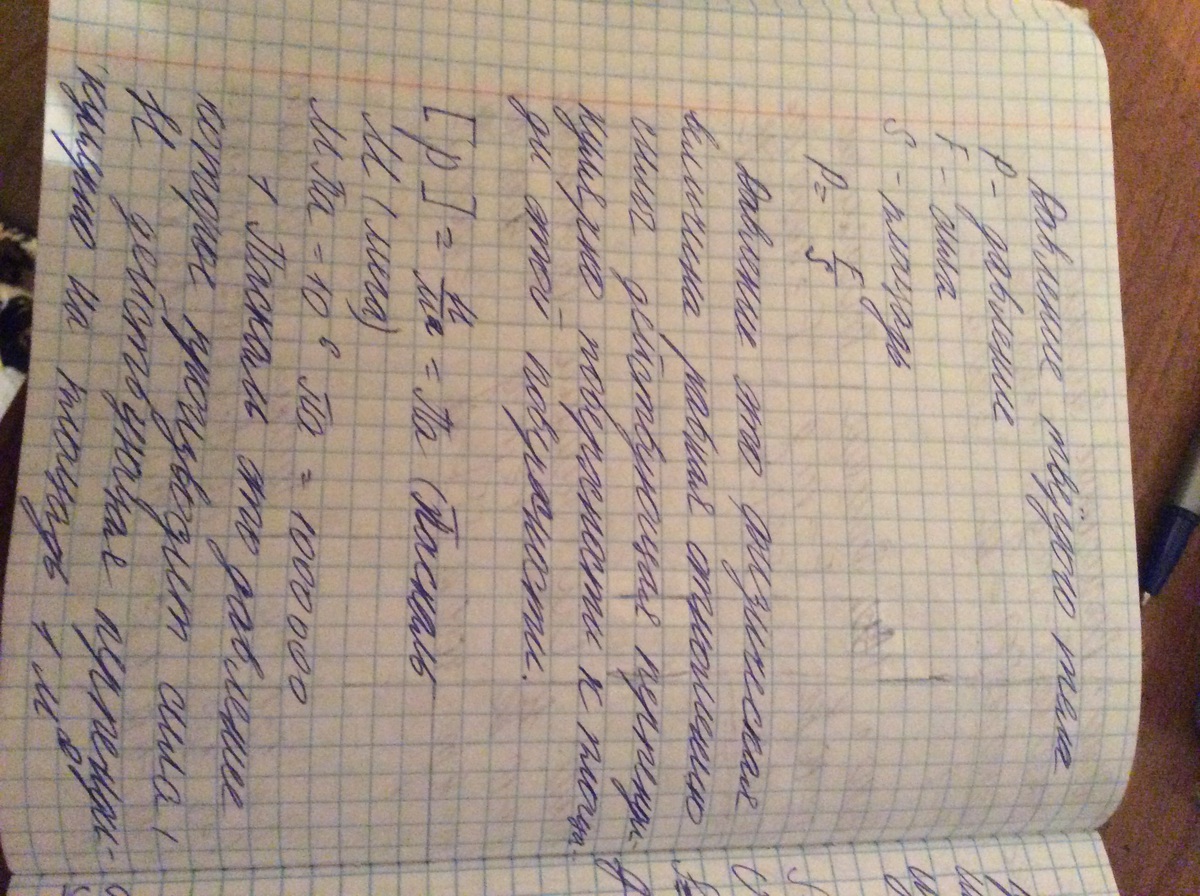 Давление твёрдого тела
P - давление
F - сила
S - площадь
P = F/S
Давление это физическая
величина равная отношению
силы действующая перпенди-
кулярно поверхности к площа-
ди этой поверхности.
[p] = Н/м² = Па (Паскаль
М (мега)
МПа = 10⁶ Па = 1000 000
1 Паскаль это давление
которое производит сила 1
Н действующае перпенди-
кулярно на площадь 1 м²